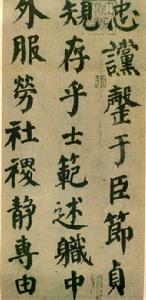 忠讜罄于臣節貞
規存乎士範述職中
外服勞社稷靜專由